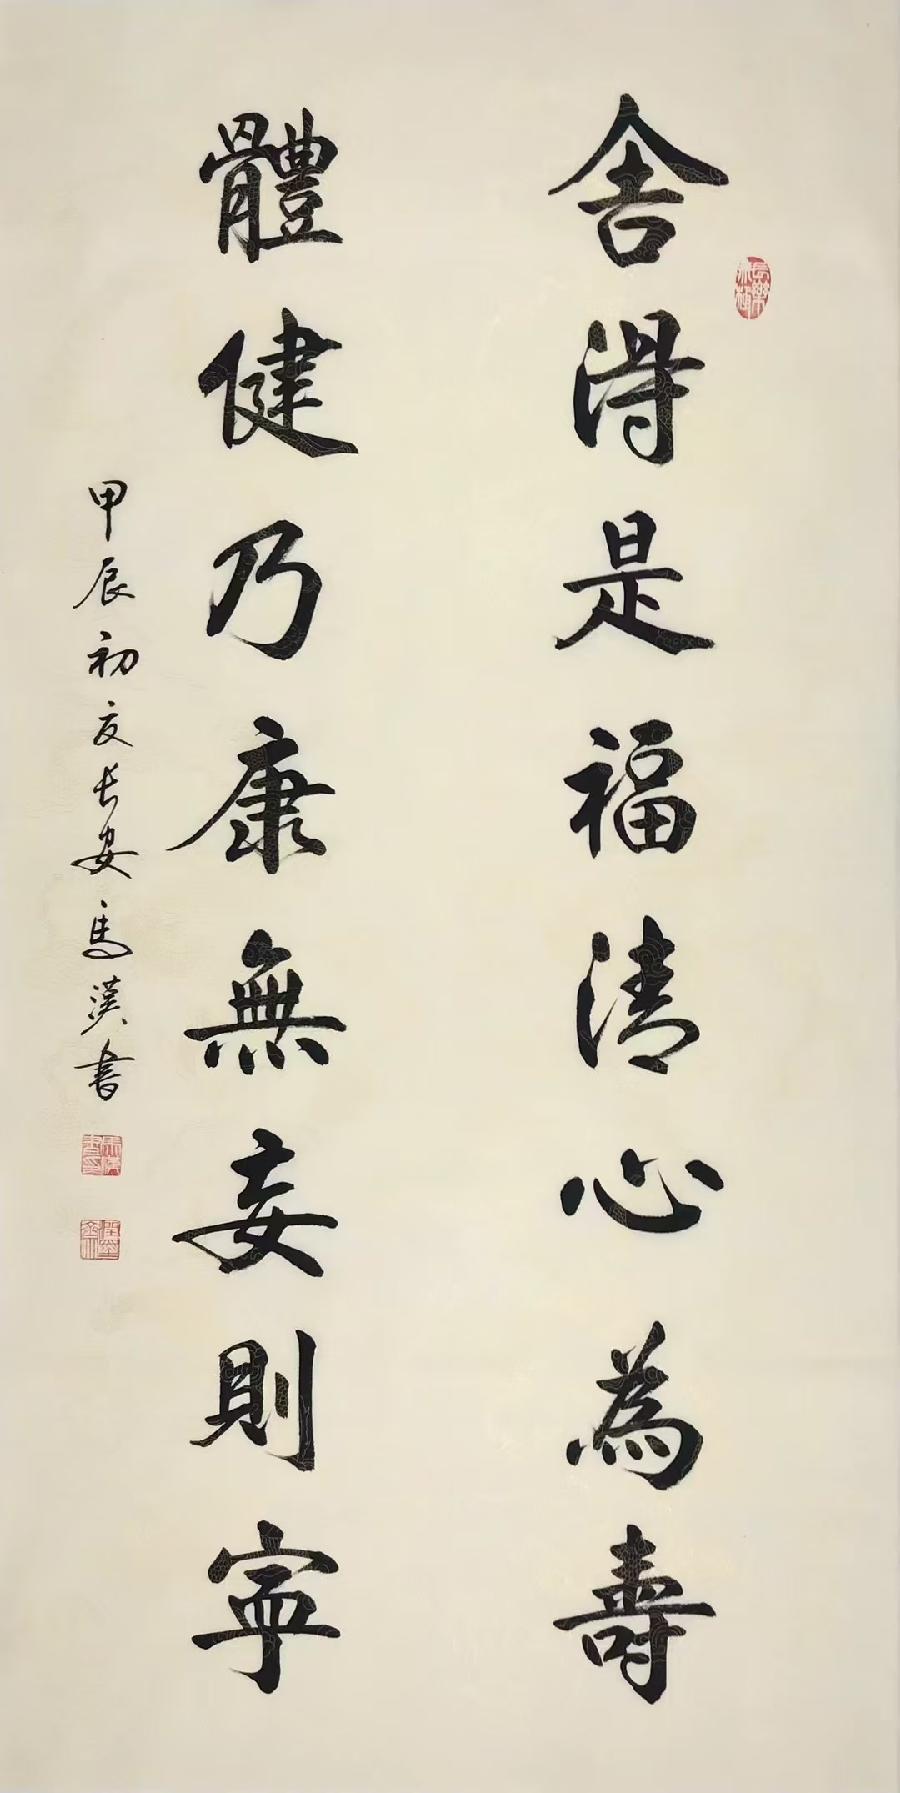 舍得是福清心為壽
體健乃康無妄則寧
甲辰初夏長安馬漢書